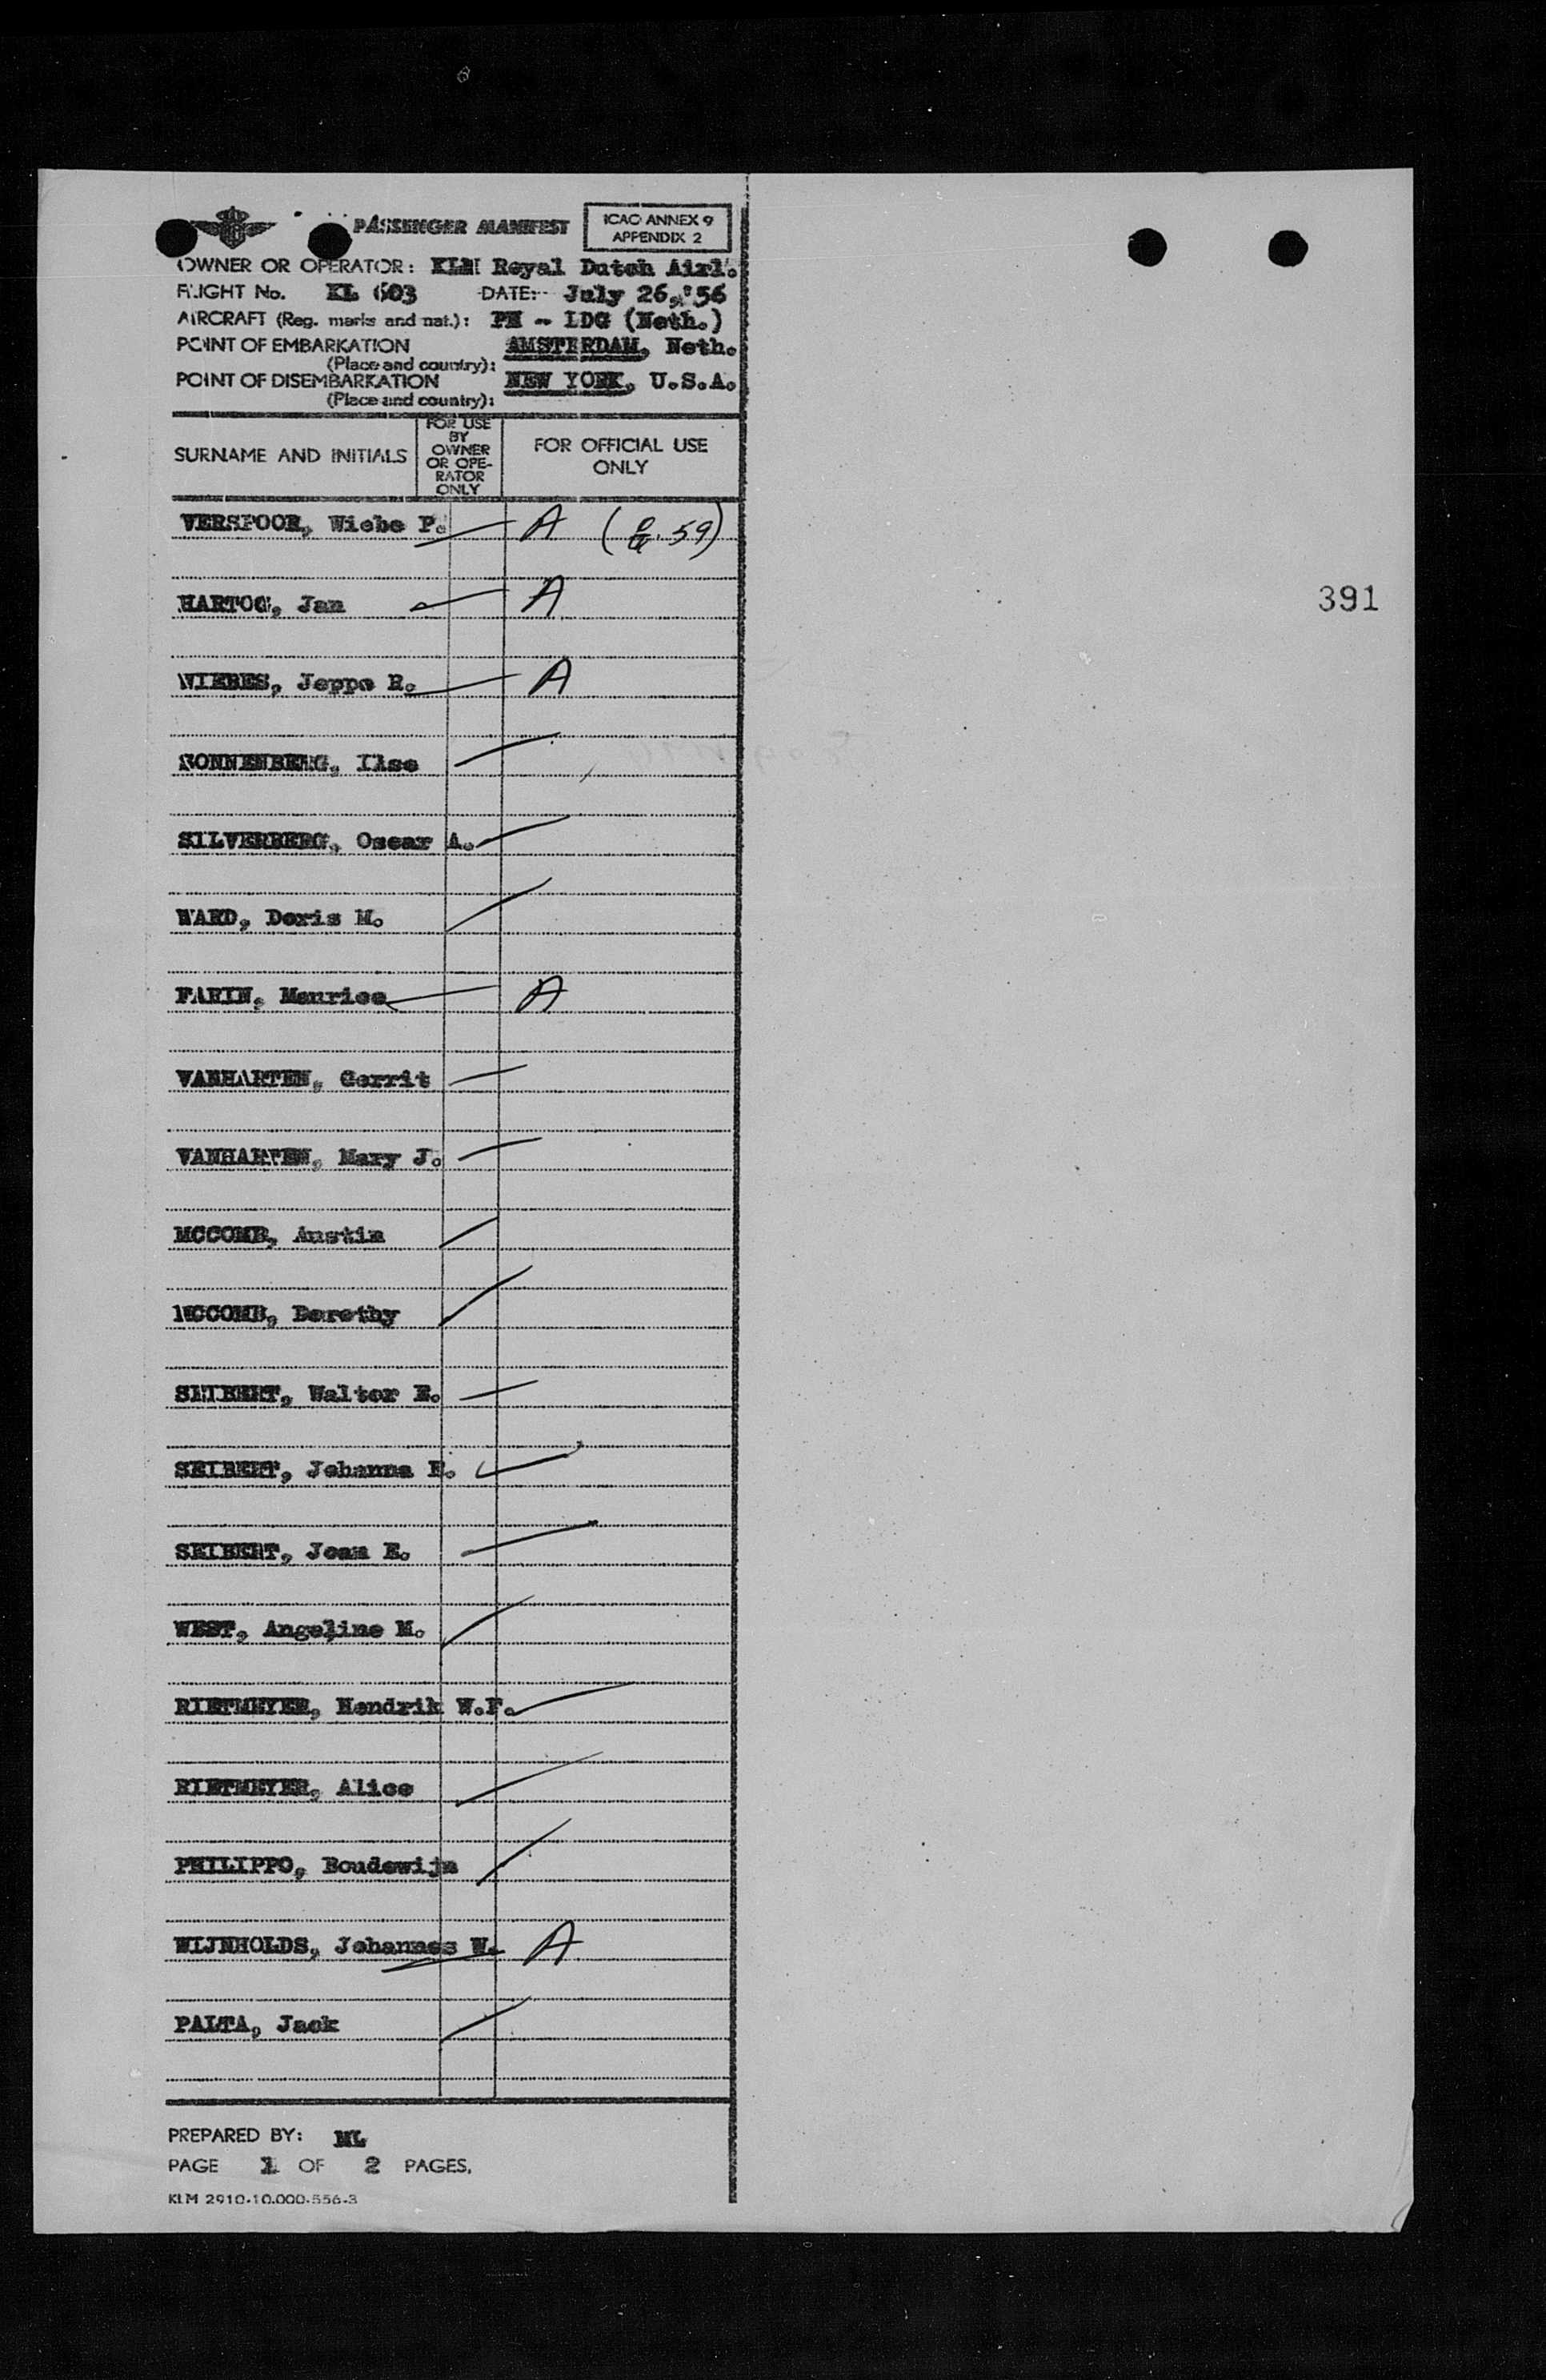 PASSENGER MANIFEST
ICAO ANNEX 9
APPENDIX 2
OWNER OR OPERATOR: KLM Royal Dutch Airl.
FLIGHT No. KL 603 DATE: July 26, '56
AIRCRAFT (Reg. marks and nat.): PH - LDG (Neth.)
POINT OF EMBARKATION AMSTERDAM, Neth.
(Place and country):
POINT OF DISEMBARKATION NEW YORK, U.S.A.
(Place and country):
SURNAME AND INITIALS
FOR USE
BY
OWNER
OR OPE-
RATOR
ONLY
FOR OFFICIAL USE
ONLY
VERSPOOR, Wiebe P. A
HARTOG, Jan A
391
WIEBES, Jeppe R. A
SONNENBERG, Ilse
SILVERBERG, Oscar A.
WARD, Doris M.
FARIN, Maurice A
VANHARTEN, Gerrit
VANHARTEN, Mary J.
MCCOMB, Austin
MCCOMB, Dorothy
SEIBERT, Walter E.
SEIBERT, Johanna E.
SEIBERT, Joan E.
WEST, Angeline M.
RIETMEYER, Hendrik W.F.
RIETMEYER, Alice
PHILIPPO, Boudewijn
WIJNHOLDS, Johannes W. A
PALTA, Jack
PREPARED BY: ML
PAGE 1 OF 2 PAGES.
KLM 2910-10.000-556-3